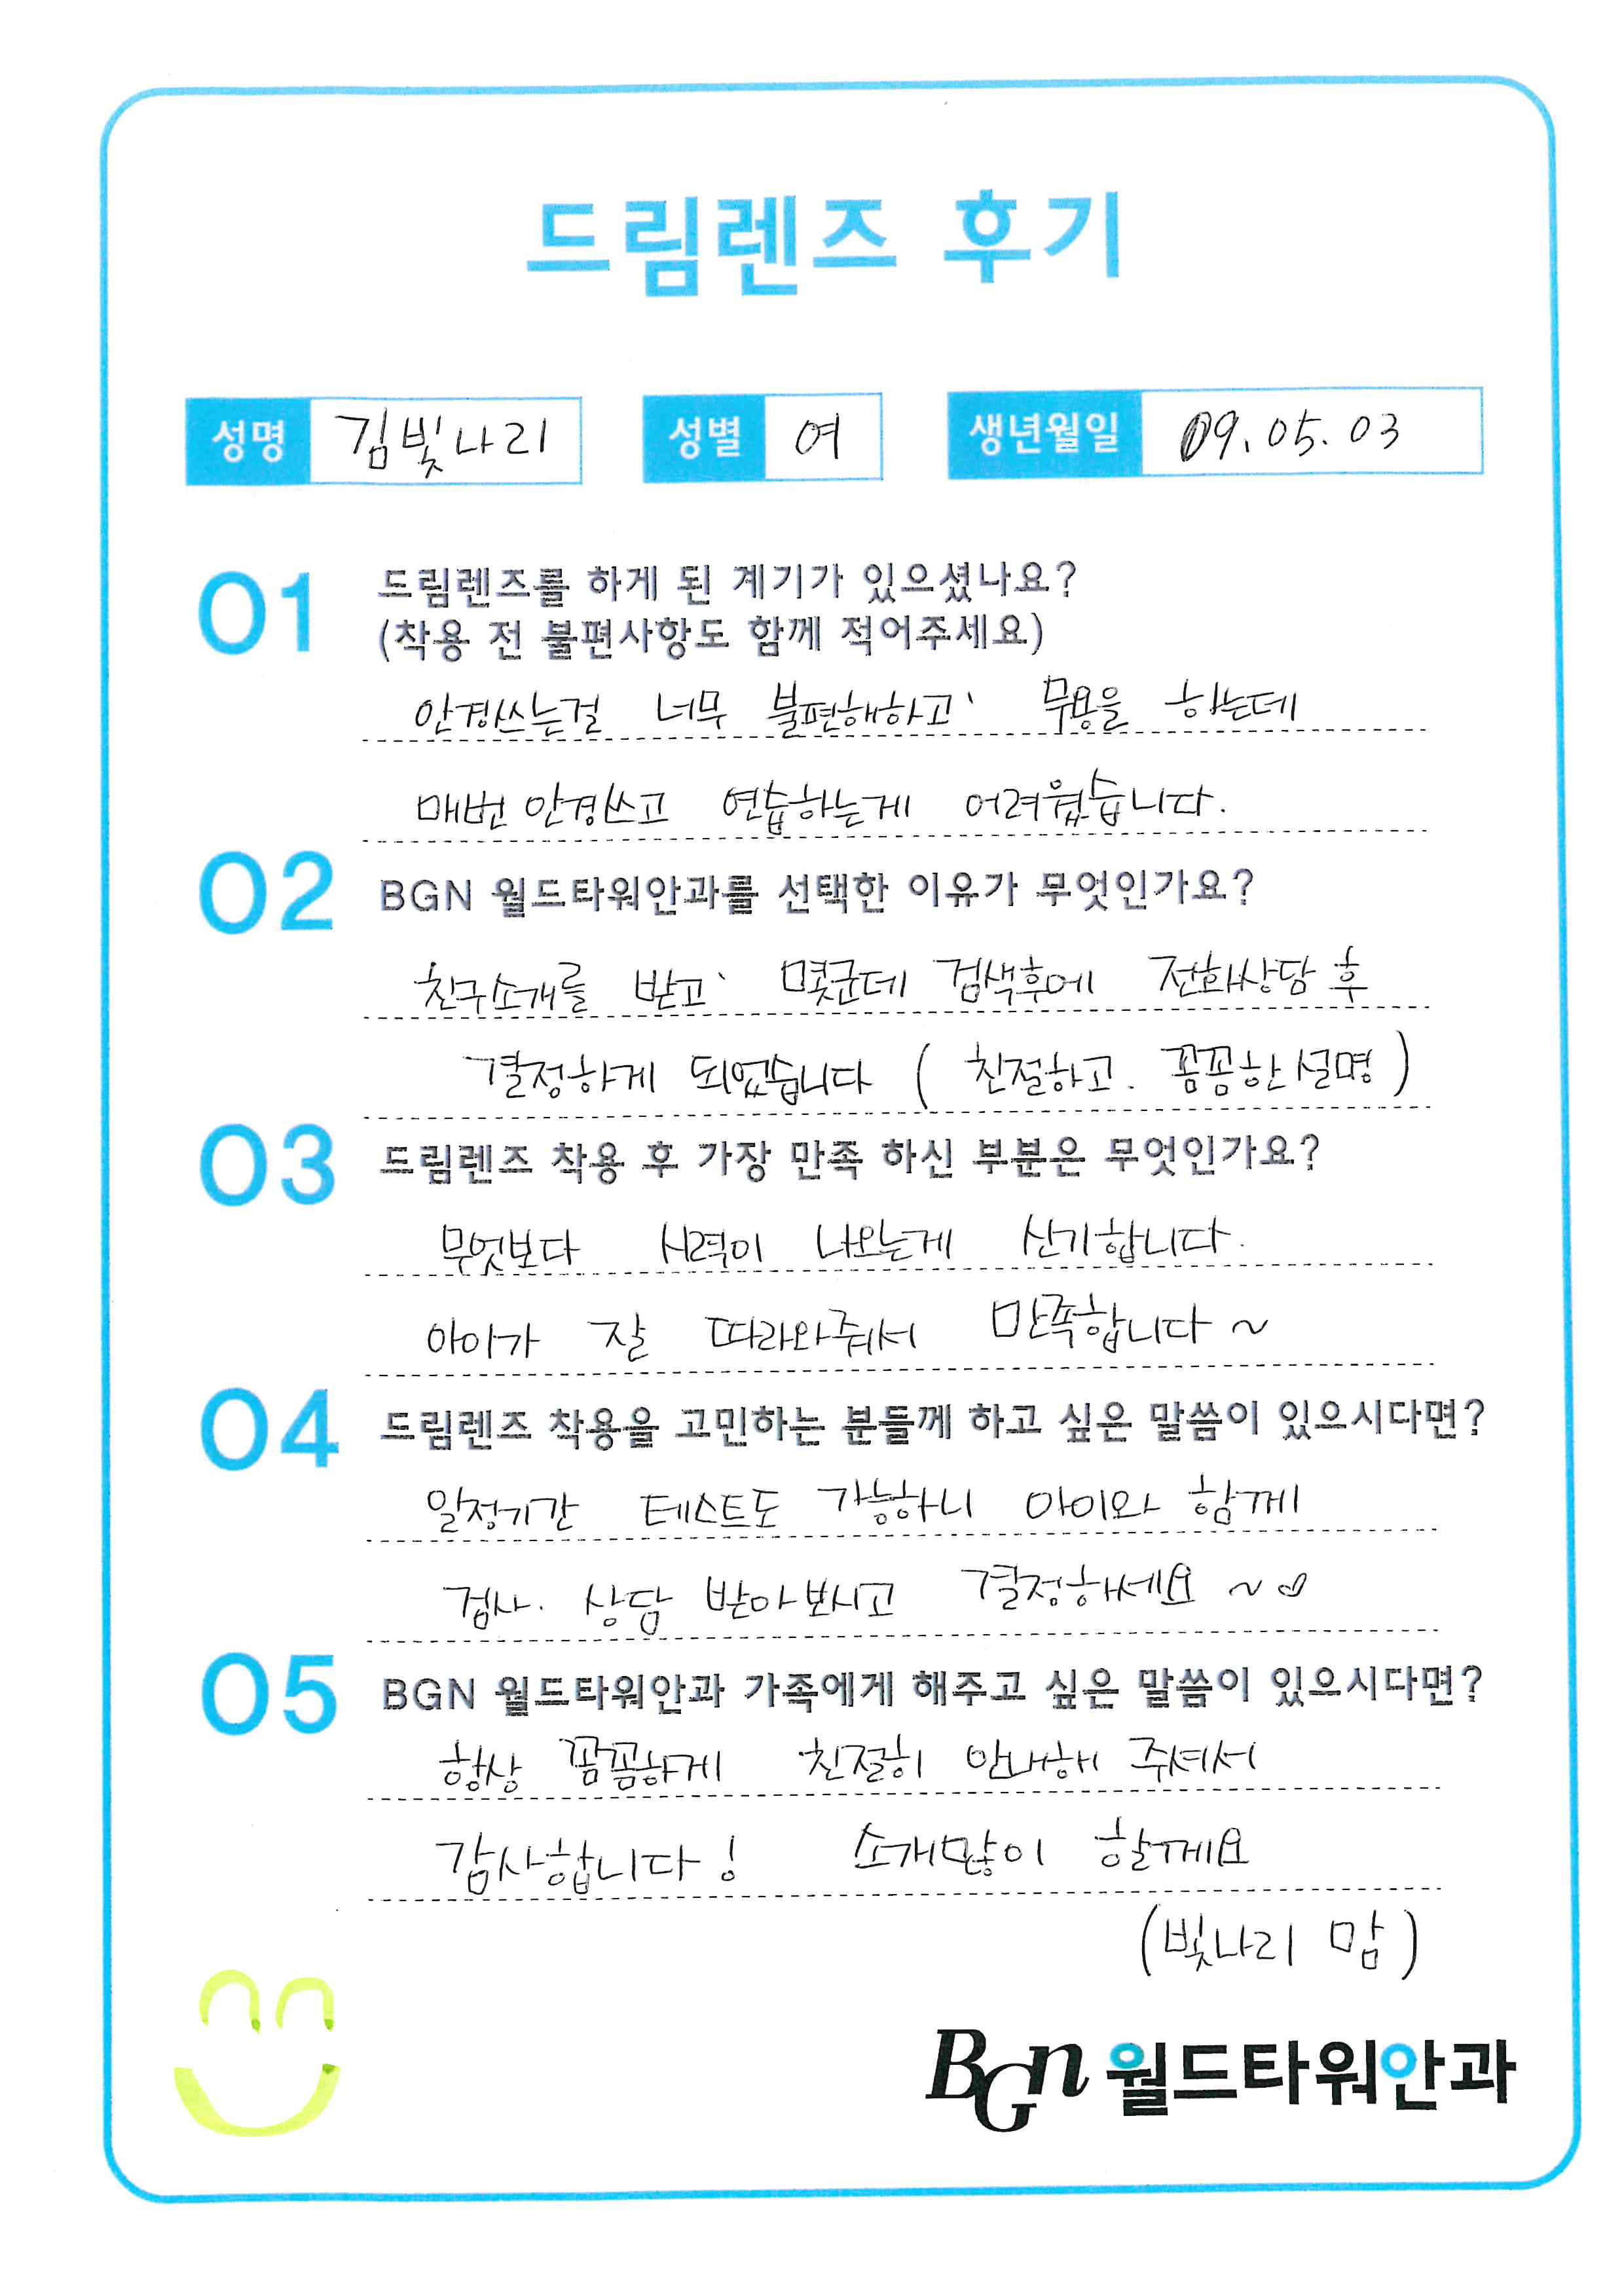 드림렌즈 후기
성명 김빛나리 성별 여 생년월일 09.05.03
01 드림렌즈를 하게 된 계기가 있으셨나요?
(착용 전 불편사항도 함께 적어주세요)
안경쓰는걸 너무 불편해하고, 무용을 하는데
매번 안경쓰고 연습하는게 어려웠습니다.
02 BGN 월드타워안과를 선택한 이유가 무엇인가요?
친구소개를 받고, 몇군데 검색후에 전화상담 후
결정하게 되었습니다 ( 친절하고. 꼼꼼한 설명 )
03 드림렌즈 착용 후 가장 만족 하신 부분은 무엇인가요?
무엇보다 시력이 나오는게 신기합니다.
아이가 잘 따라와줘서 만족합니다 ~
04 드림렌즈 착용을 고민하는 분들께 하고 싶은 말씀이 있으시다면?
일정기간 테스트도 가능하니 아이와 함께
검사. 상담 받아보시고 결정하세요 ~♡
05 BGN 월드타워안과 가족에게 해주고 싶은 말씀이 있으시다면?
항상 꼼꼼하게 친절히 안내해 주셔서
감사합니다! 소개많이 할께요
(빛나리 맘)
BGN 월드타워안과